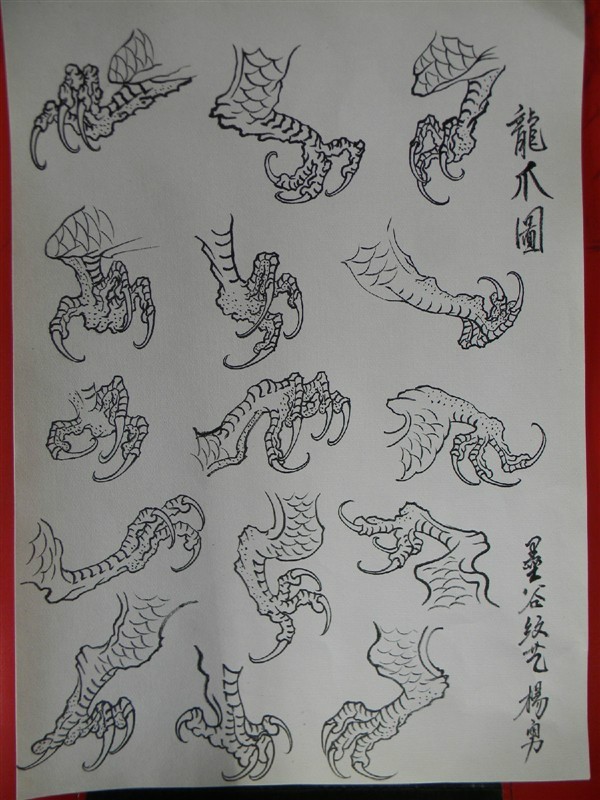 龍爪圖
墨谷纹艺 楊勇